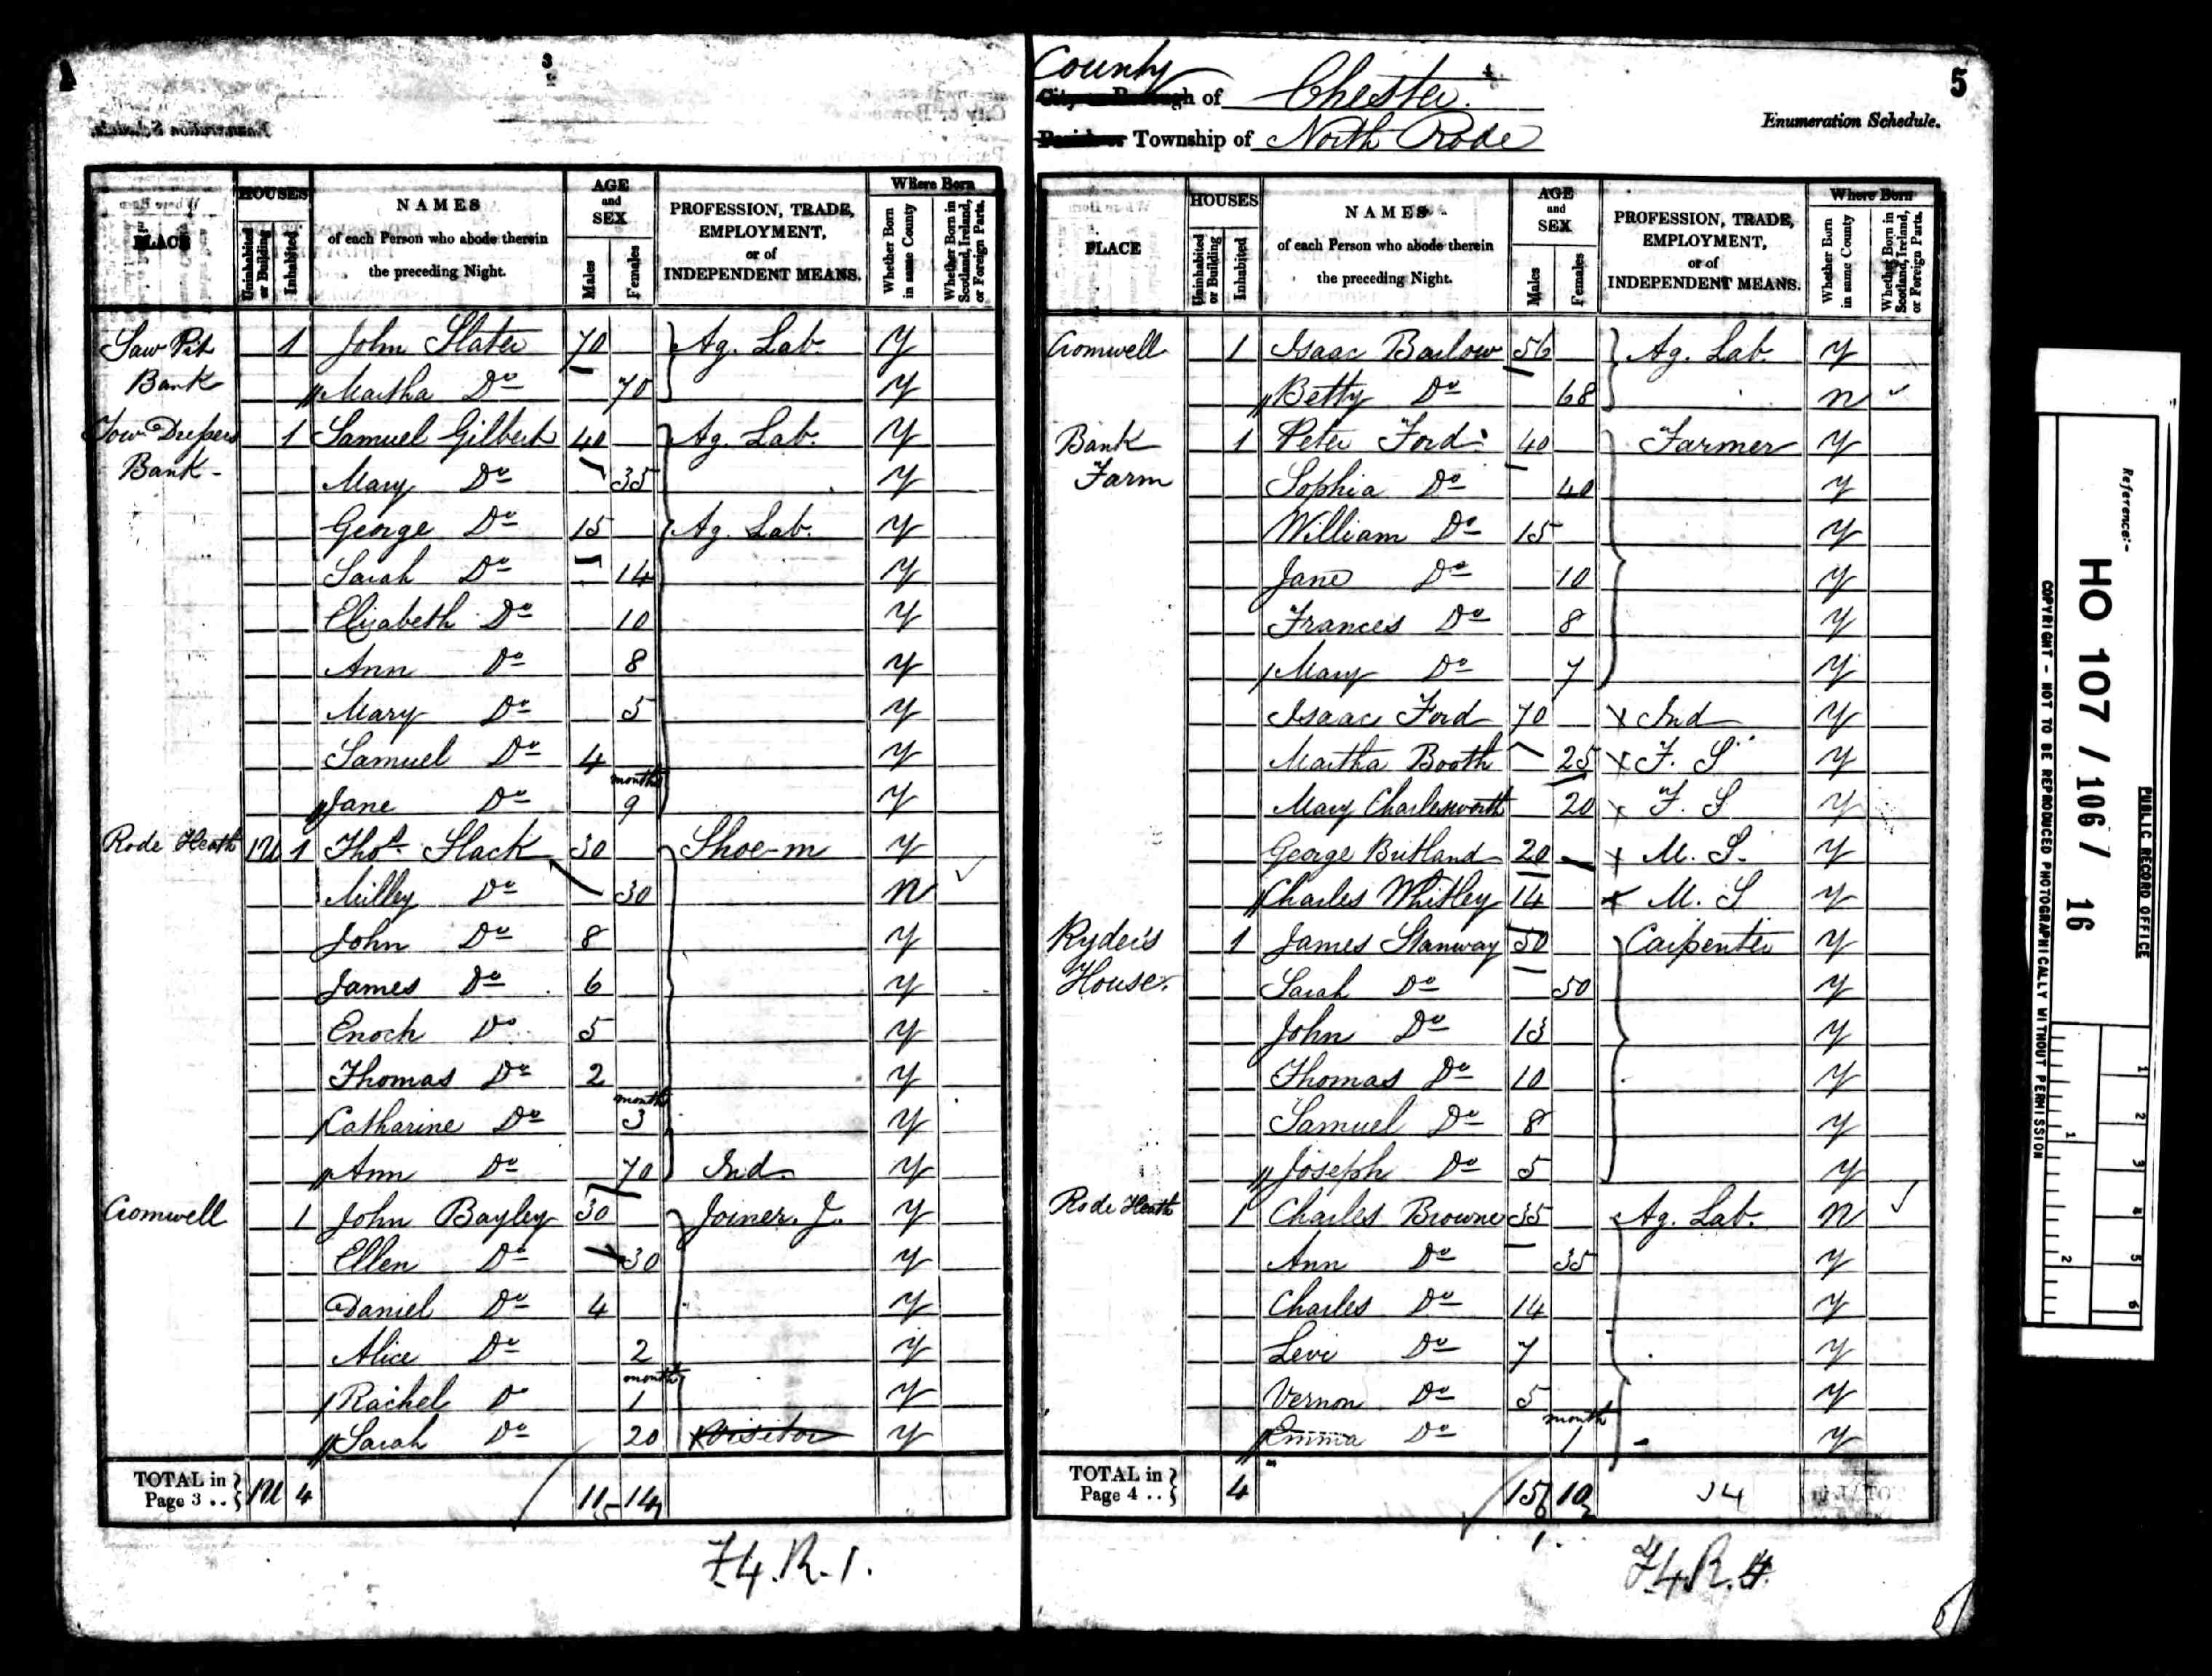 3
PLACE | HOUSES | NAMES of each Person who abode therein the preceding Night. | AGE and SEX | PROFESSION, TRADE, EMPLOYMENT, or of INDEPENDENT MEANS. | Where Born
Uninhabited or Building | Inhabited | Males | Females | Whether Born in same County | Whether Born in Scotland, Ireland, or Foreign Parts.
Saw Pit 1 John Slater 70 Ag. Lab. Y
Bank Martha Do 70 Y
Tow Dressers 1 Samuel Gilbert 40 Ag. Lab. Y
Bank - Mary Do 35 Y
George Do 15 Ag. Lab. Y
Sarah Do 14 Y
Elizabeth Do 10 Y
Ann Do 8 Y
Mary Do 5 Y
Samuel Do 4 Y
Jane Do months 9 Y
Rode Heath 1U 1 Thos. Slack 30 Shoe-m Y
Milley Do 30 N
John Do 8 Y
James Do 6 Y
Enoch Do 5 Y
Thomas Do 2 Y
Catharine Do months 3 Y
Ann Do 70 Ind. Y
Cromwell 1 John Bayley 30 Joiner. J. Y
Ellen Do 30 Y
Daniel Do 4 Y
Alice Do 2 Y
Rachel Do month 1 Y
Sarah Do 20 Visitor Y
TOTAL in Page 3 .. 1U 4 11 14
F.4.R.1.
County
City or Borough of Chester.
4
5
Parish or Township of North Rode
Enumeration Schedule.
PLACE | HOUSES | NAMES of each Person who abode therein the preceding Night. | AGE and SEX | PROFESSION, TRADE, EMPLOYMENT, or of INDEPENDENT MEANS. | Where Born
Uninhabited or Building | Inhabited | Males | Females | Whether Born in same County | Whether Born in Scotland, Ireland, or Foreign Parts.
Cromwell 1 Isaac Barlow 56 Ag. Lab. Y
Betty Do 68 N
Bank 1 Peter Ford 40 Farmer Y
Farm Sophia Do 40 Y
William Do 15 Y
Jane Do 10 Y
Frances Do 8 Y
Mary Do 7 Y
Isaac Ford 70 Ind Y
Martha Booth 25 F. S Y
Mary Charlesworth 20 F. S Y
George Butland 20 M. S. Y
Charles Whitley 14 M. S Y
Ryder's 1 James Stanway 50 Carpenter Y
House. Sarah Do 50 Y
John Do 13 Y
Thomas Do 10 Y
Samuel Do 8 Y
Joseph Do 5 Y
Rode Heath 1 Charles Browne 35 Ag. Lab. N
Ann Do 35 Y
Charles Do 14 Y
Levi Do 7 Y
Vernon Do 5 Y
Emma Do month 1 Y
TOTAL in Page 4 .. 4 15 10
F.4.R.4.
Reference:-
HO 107 / 106 / 16
PUBLIC RECORD OFFICE
COPYRIGHT - NOT TO BE REPRODUCED PHOTOGRAPHICALLY WITHOUT PERMISSION
1 2 3 4 5 6
1 2